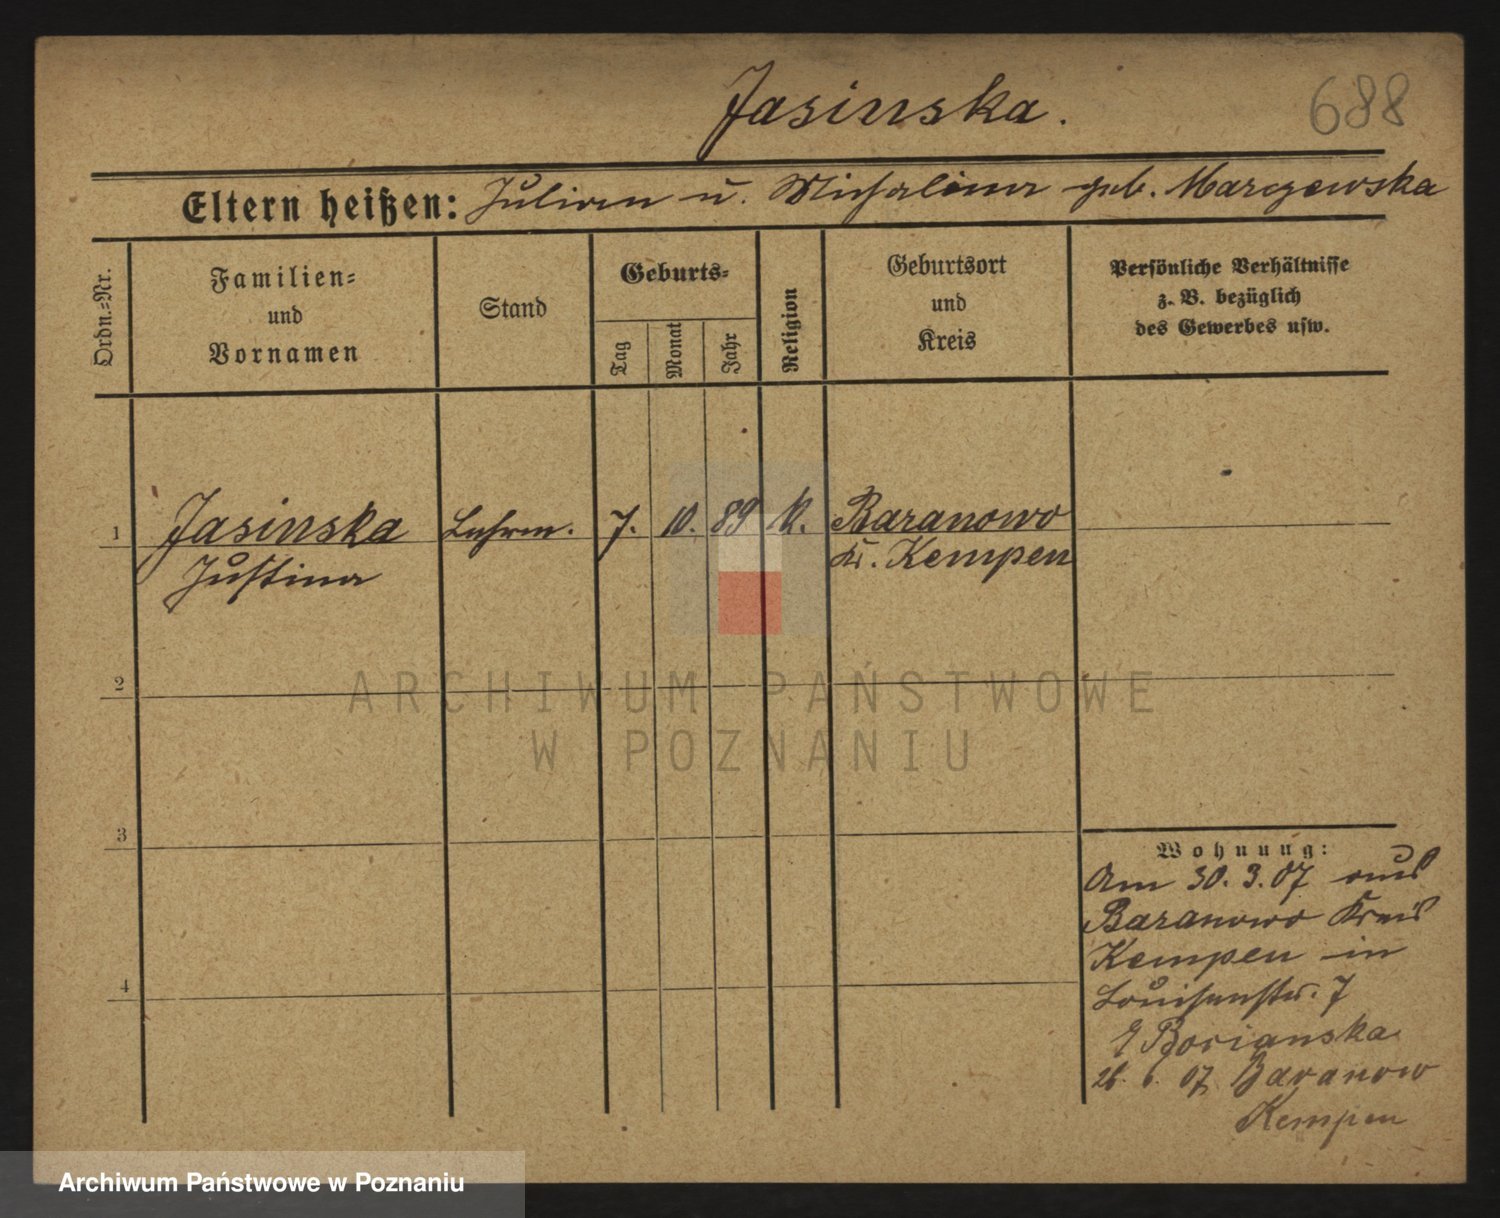 Jasinska.
688
Eltern heißen: Julian u. Michalina geb. Marczewska
Ordn.-Nr.
Familien-
und
Vornamen
Stand
Geburts-
Tag
Monat
Jahr
Religion
Geburtsort
und
Kreis
Persönliche Verhältnisse
z. B. bezüglich
des Gewerbes usw.
1 Jasinska 7. 10. 89 k. Baranowo
Justina Kr. Kempen
2
3
4
Wohnung:
Am 30. 3. 07 aus
Baranowo Kreis
Kempen in
Louisenstr. 7
Borianska
26. 6. 07 Baranow
Kempen
ARCHIWUM PAŃSTWOWE
W POZNANIU
Archiwum Państwowe w Poznaniu